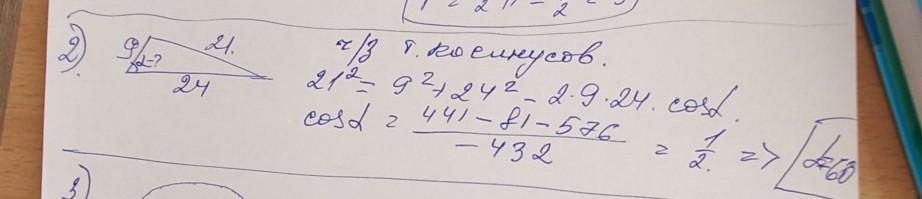 2)
9
21.
α-?
24
ч/з т. косинусов.
21² = 9² + 24² - 2·9·24· cosα.
cosα = 441 - 81 - 576 / -432 = 1/2. => α=60
3)